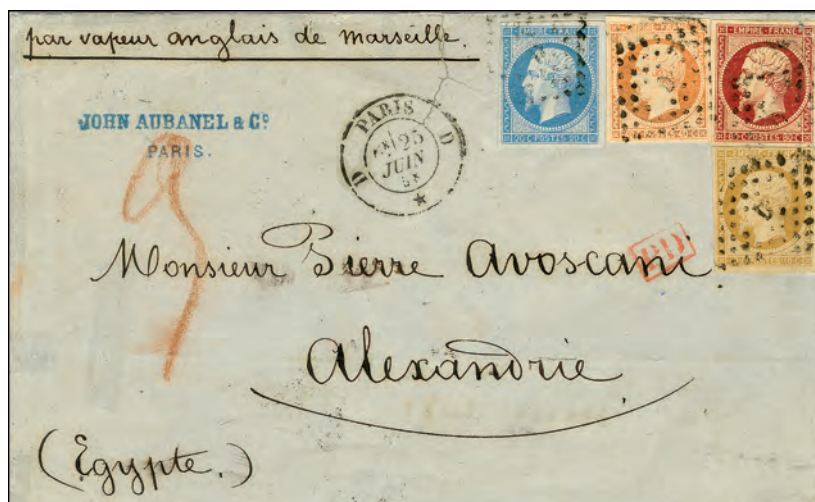 par vapeur anglais de Marseille.
JOHN AUBANEL & Cº
PARIS.
D PARIS D
25
JUIN
58
EMPIRE FRANC
20 C POSTES 20 C
EMPIRE FRANC
EMPIRE FRANC
80 C POSTES 80 C
3
PD
Monsieur Pierre Avoscani
Alexandrie
(Egypte.)